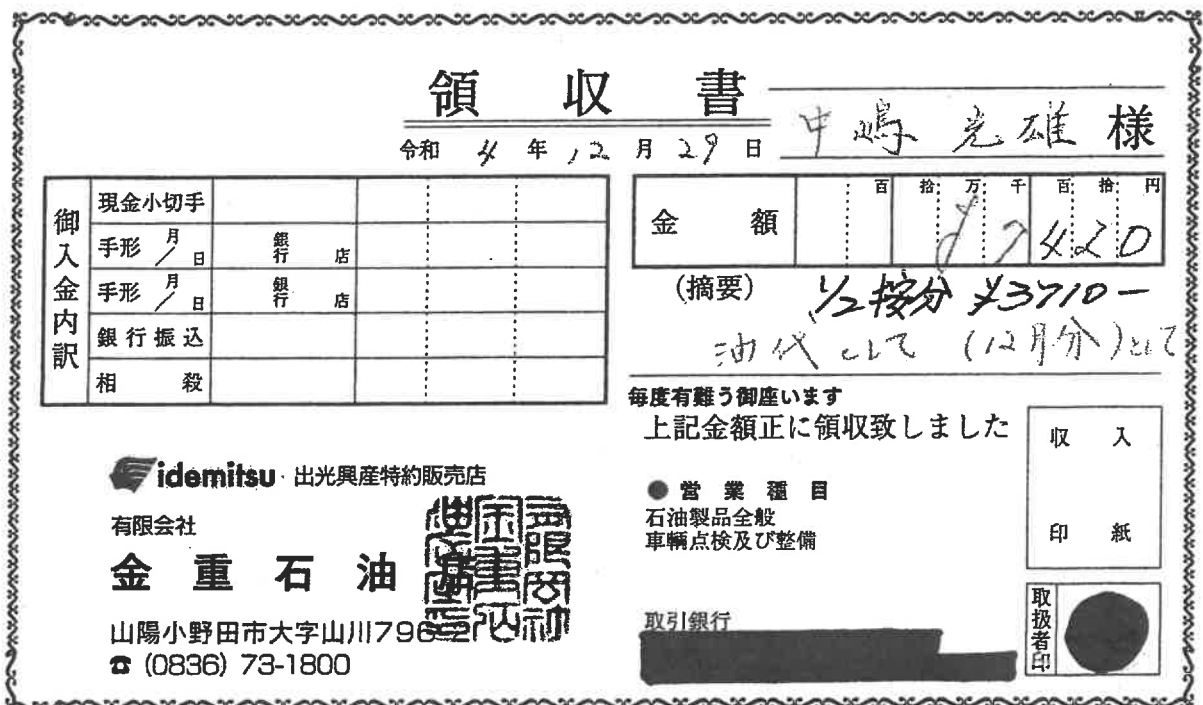 領収書
中嶋 光雄 様
令和 4 年 12 月 29 日
御入金内訳
現金小切手
手形 月/日 銀行 店
手形 月/日 銀行 店
銀行振込
相殺
金額 百 拾 万 千 百 拾 円
¥7420
(摘要) 1/2按分 ¥3710-
油代として (12月分)として
毎度有難う御座います
上記金額正に領収致しました
収入印紙
idemitsu 出光興産特約販売店
有限会社
金重石油店
山陽小野田市大字山川796-2
☎ (0836) 73-1800
● 営業種目
石油製品全般
車輌点検及び整備
取引銀行
取扱者印